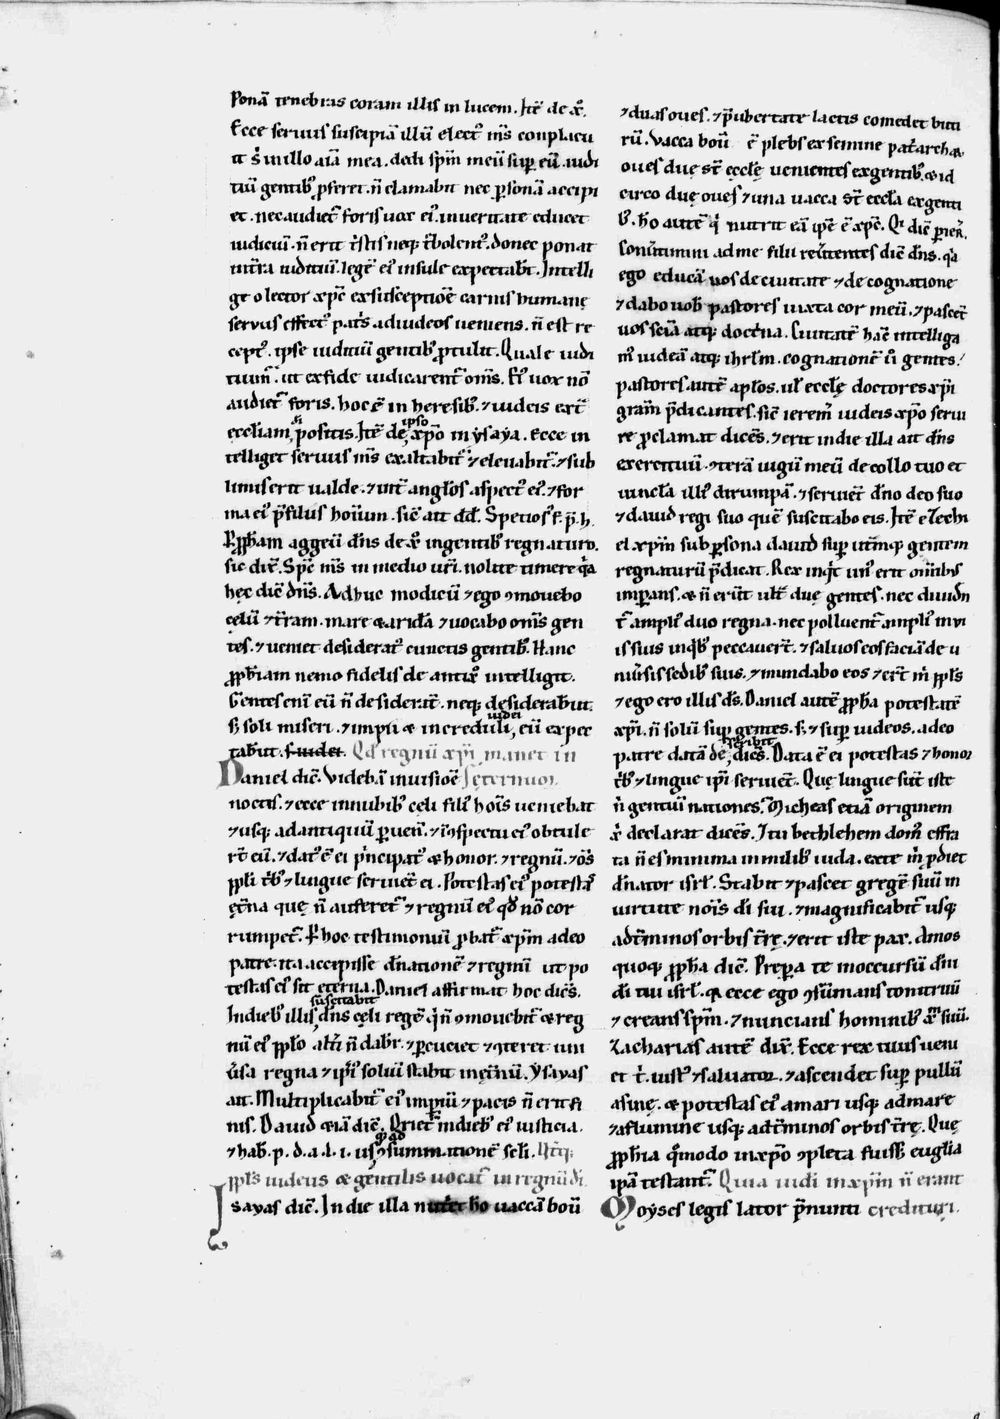 Ponā tenebras coram illis in lucem. Itē de xp̄o.
Ecce seruus suscipiā illū elect᷒ m̄s conplacu
it s̄ in illo aīa mea. dedi spm̄ meū sup eū. iudi
tiū gentib᷒ pferet. n̄ clamabit nec psonā accipi
et. nec audiet̄ foris uox ei᷒. in ueritate educet
iudiciū. n̄ erit t̄stis neq; t̄bolent᷒. donec ponat
in t̄ra iuditiū. legē ei᷒ insule expectabt̄. Intelli
ge o lector xp̄c ex susceptiōe carnis humanę
seruus effect᷒ pat̄s ad iudeos ueniens. n̄ est re
cept᷒. ipse iuditiū gentib᷒ ptulit. Quale iudi
tiūm̄. ut ex fide iudicarent̄ om̄s. Et᷒ uox nō
audiet̄ foris. hoc ē in heresib᷒. ⁊ iudeis ext̄
eccliam, p̄ositis. Itē de ipso xp̄o in ysaya. Ecce in
telliget seruus m̄s exaltabit̄ ⁊ eleuabit̄. ⁊ sub
limis erit ualde. ⁊ int̄ anglōs aspect᷒ ei᷒. ⁊ for
ma ei᷒ p̄ filius hoīum. siē ait dd̄. Spetios᷒ f. p̄. h.
P pphām aggeū dn̄s de xp̄o in gentib᷒ regnaturo.
sic diē. Spc̄ m̄s in medio ur̄i. nolite timere q̄a
hęc diē dn̄s. Adhuc modicū ⁊ ego ɔmouebo
cęlū ⁊ t̄ram. mare & aridā ⁊ uocabo om̄s gen
tes. ⁊ ueniet desiderat᷒ cunctis gentib᷒. Hanc
pphiam nemo fidelis de antixp̄o intelligit.
Gentes eni eū n̄ desiderat̄. neq; desiderabūt
s; soli miseri. ⁊ impii & increduli, iudei eū expec
tabūt. f. iudei. Qd̄ regnū xp̄i manet in
Daniel diē. Videbā in uisiōe s̄eternum.
noctis. ⁊ ecce in nubib᷒ celi fili᷒ hoīs ueniebat
⁊ usq; ad antiquū puen̄. ⁊ in ɔspectu ei᷒ obtule
rt̄ eū. ⁊ dat᷒ ē ei pncipat᷒ & honor. ⁊ regnū. ⁊ om̄s
ppli t̄b᷒ ⁊ lingue seruiet̄ ei. Potestas ei᷒ potestas
ęt̄na que n̄ auferet̄ ⁊ regnū ei᷒ qd̄ nō cor
rumpet̄. P hoc testimoniū pbat̄ xpm̄ a deo
patre. ita accipisse dn̄ationē ⁊ regnū ut po
testas ei᷒ sit eterna. Daniel affirmat hoc dicēs.
In dieb᷒ illis, suscitabit dn̄s cęli regē q̄ n̄ ɔmouebit̄ & reg
nū ei᷒ pplo alt̄i n̄ dabit̄. ⁊ pcuciet ⁊ ɔteret uni
ūsa regna ⁊ ipm̄ solum stabit in ęt̄nū. Ysayas
ait. Multiplicabit̄ ei᷒ imperiū ⁊ pacis n̄ erit fi
nis. Dauid etiā diē. Oriet̄ in dieb᷒ ei᷒ iusticia.
⁊ hab. p. d. a. l. i. usq; ad ɔsummationē scli. Utq;
ppls iudeus & gentilis uocat̄ in regnū dī.
Isayas diē. In die illa nutriet ho uaccā boū
⁊ duas oues. ⁊ p̄ ubertate lactis comedet buti
rū. Vacca boū ē plebs ex semine pat̄archaꝝ
oues duę st̄ ecclę uenientes ex gentib᷒. & id
circo duę oues ⁊ una uacca st̄ eccla ex genti
b᷒. ho autē q̄ nutrit eā ipē ē xp̄c. Qi diē p ier̄.
Conūtimini ad me filii reūtentes diē dn̄s. q̄a
ego educā uos de ciuitate ⁊ de cognatione
⁊ dabo uob pastores iuxta cor meū. ⁊ pascet̄
uos sciā atq; doct̄na. Ciuitatē hac intelliga
m᷒ iudeā atq; ihrlm̄. cognationē ū gentes.
pastores autē aplōs. ut ecclę doctores xp̄i
gram̄ p̄dicantes. siē ierem᷒ iudeis xp̄o serui
re pclamat dicēs. ⁊ erit in die illa ait dn̄s
exercituū. ɔterā iugū meū de collo tuo et
uincla illi᷒ dirumpā. ⁊ seruiet̄ dn̄o deo suo
⁊ dauid regi suo quē suscitabo eis. Itē ezechi
el xpm̄ sub psona dauid sup ut̄mq; gentem
regnaturū p̄dicat. Rex inqt̄ un᷒ erit om̄ibus
imperans. & n̄ erūt ult̄ duę gentes. nec diuidn
t̄ ampli᷒ duo regna. nec polluent̄ ampli᷒ in ui
is suis in qb᷒ peccauert̄. ⁊ saluos eos faciā de u
niūsis sedib᷒ suis. ⁊ mundabo eos ⁊ ert̄ m̄ ppls
⁊ ego ero illis ds̄. Daniel autē ppha potestatē
xp̄i. n̄ solū sup gentes. s; ⁊ sup iudeos. a deo
patre datā de scribit dicēs. Data ē ei potestas ⁊ honor
t̄b᷒ ⁊ lingue ipi seruiet̄. Quę lingue sūt iste
n̄ gentiū nationes. Micheas etiā originem
xp̄i declarat dicēs. I tu bethlehem dom᷒ effra
ta n̄ es minima in milib᷒ iuda. ex te m̄ pdiet
dn̄ator isrl̄. Stabit ⁊ pascet gregē suū in
uirtute nois dī sui. ⁊ magnificabit̄ usq;
ad t̄minos orbis t̄rę. ⁊ erit iste pax. Amos
quoq; ppha diē. Prepara te in occursū dn̄i
dī tui isrl̄. q̄ ecce ego ɔfirmans tonitruū
⁊ creans spm̄. ⁊ nuncians hominib᷒ xp̄m suū.
Zacharias autē dix̄. Ecce rex tuus ueni
et t̄. iust᷒ ⁊ saluator. ⁊ ascendet sup pullū
asinę. & potestas ei᷒ a mari usq; ad mare
⁊ a flumine usq; ad t̄minos orbis t̄rę. Quę
pphia q̄modo in xp̄o ɔpleta fuiss̄ euglia
ipā testant̄. Quia iudi in xpm̄ n̄ erant
Moyses legis lator p̄nunti credituri.